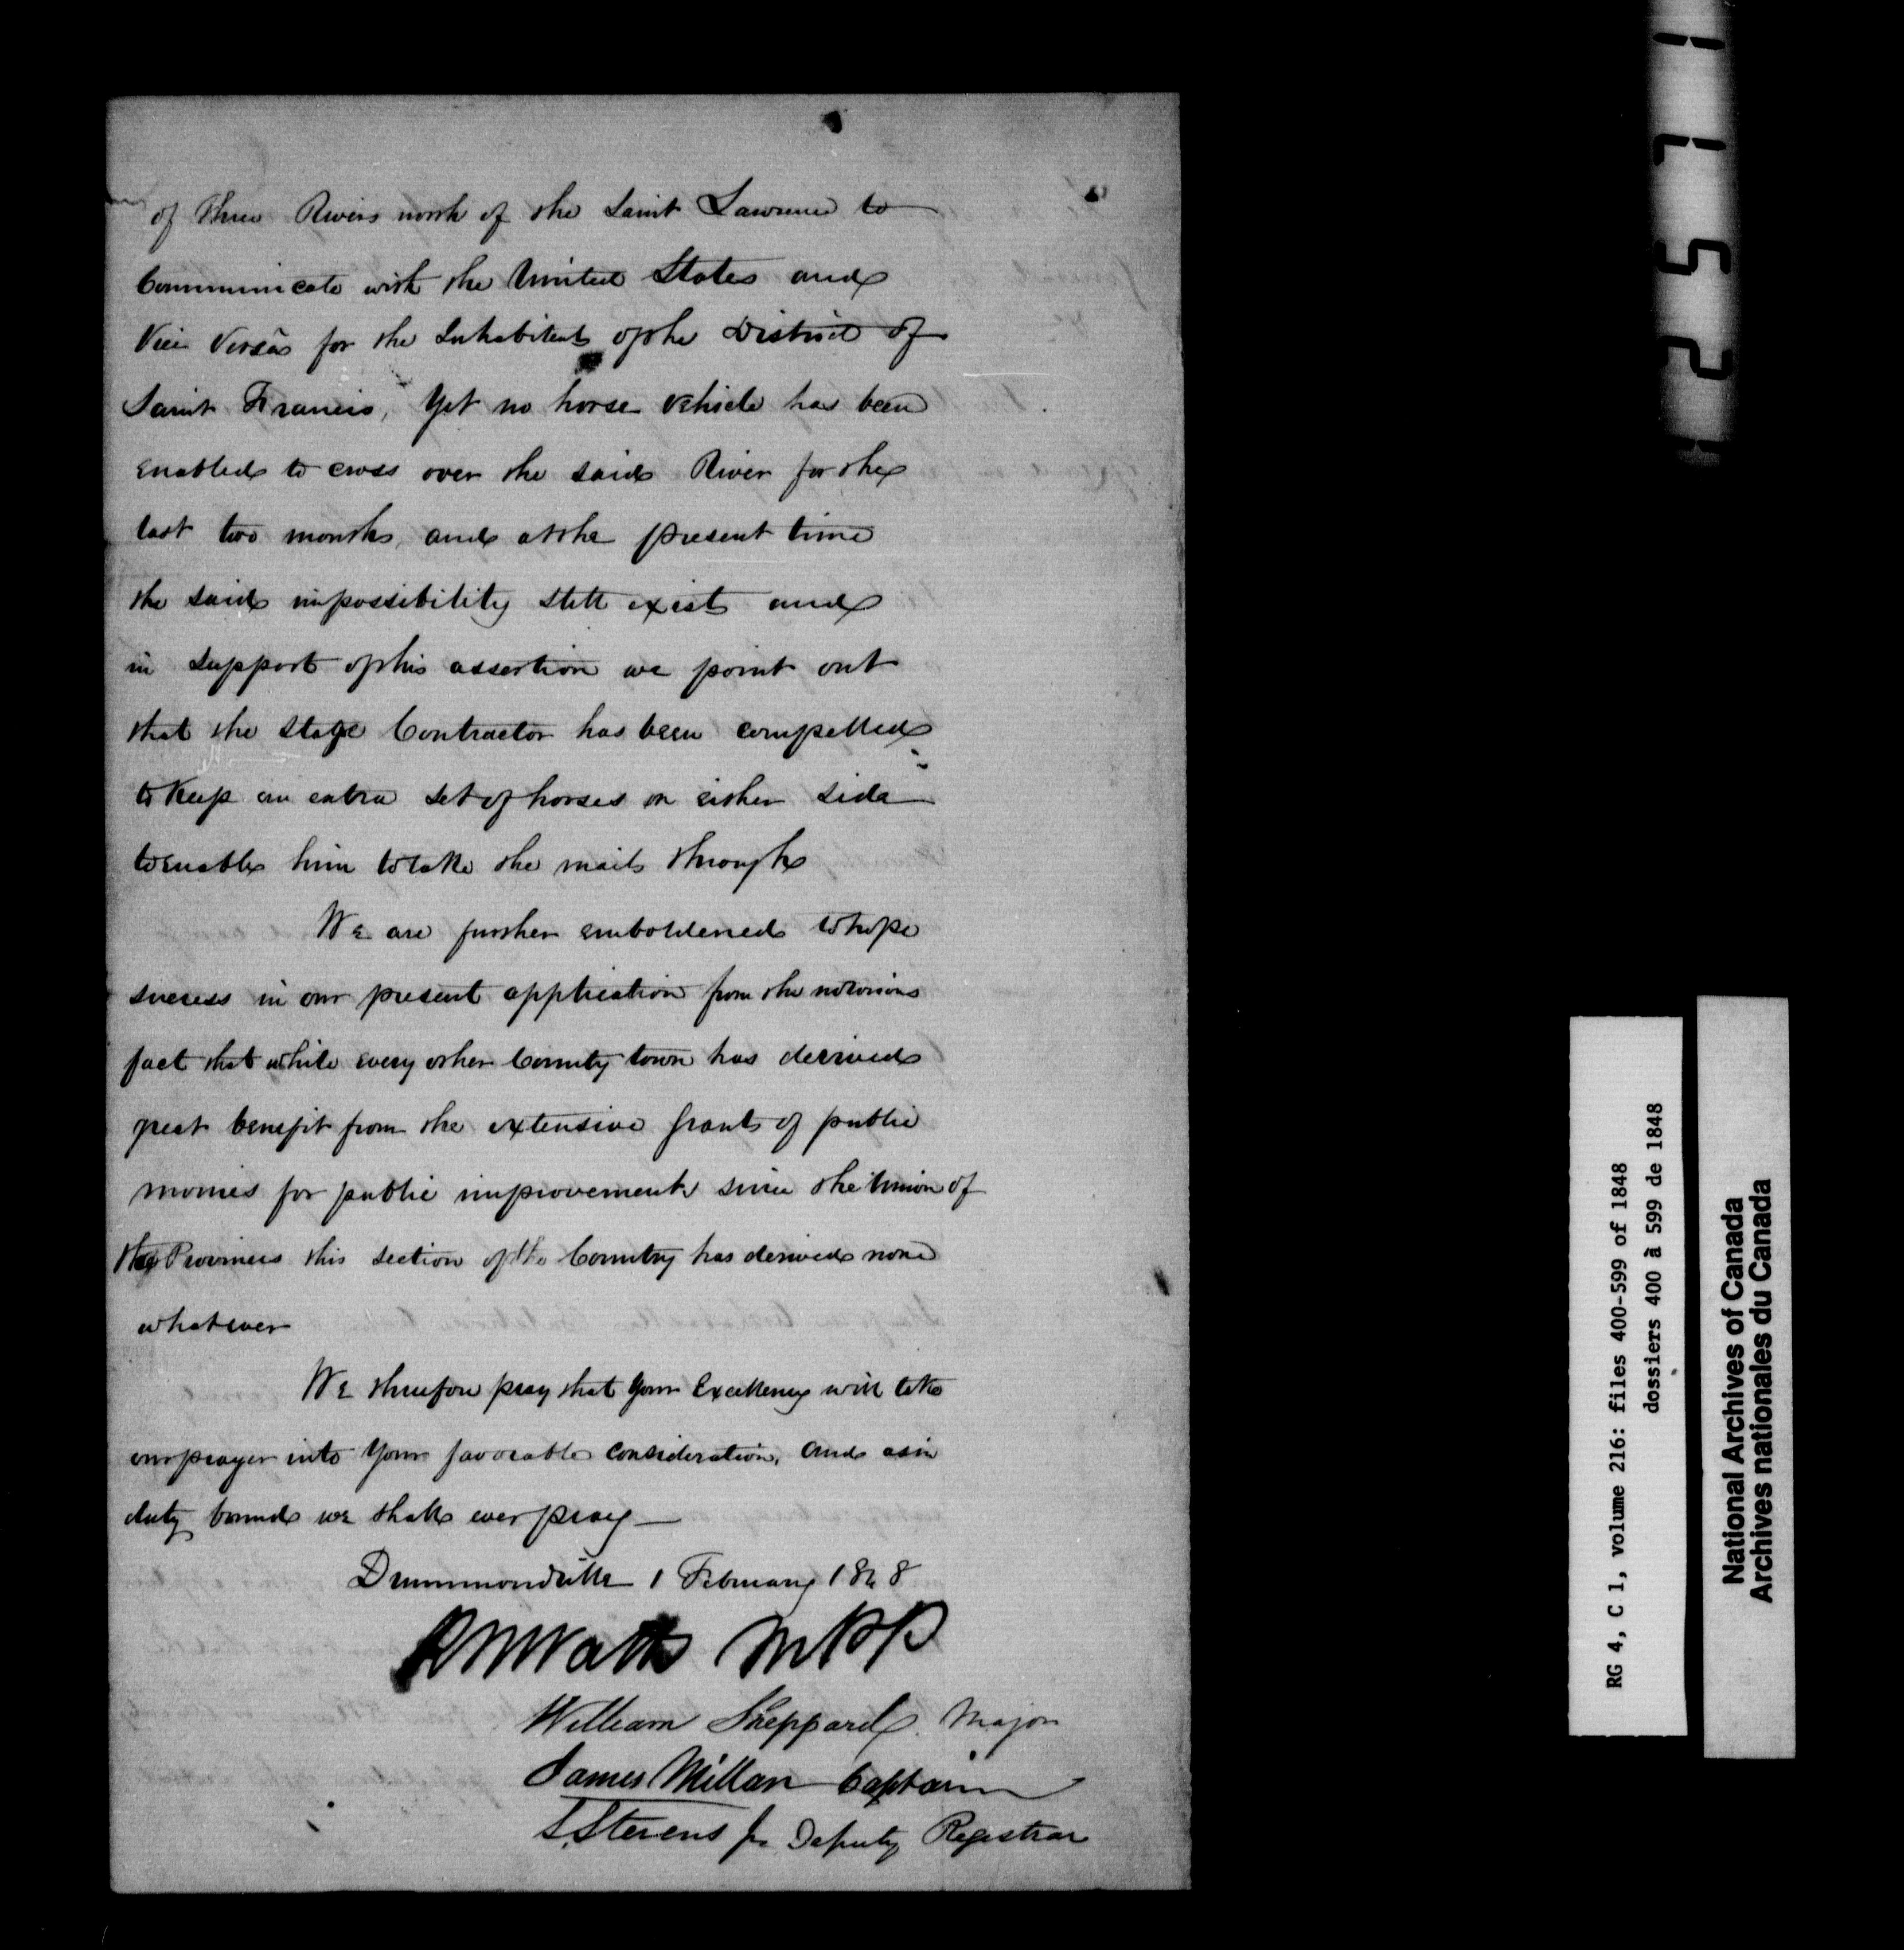 of Three Rivers north of the Saint Lawrence to
Communicate with the United States and
Vice Versâ for the Inhabitants of the District of
Saint Francis, Yet no horse vehicle has been
enabled to cross over the said River for the
last two months, and at the present time
the said impossibility still exist and
in support of this assertion we point out
that the Stage Contractor has been compelled
to keep an extra set of horses on either side
to enable him to take the mails through
We are further emboldened to hope
success in our present application from the notorious
fact that while every other County town has derived
great benefit from the extensive grants of public
monies for public improvements since the Union of
the Provinces this section of the Country has derived none
whatever
We therefore pray that Your Excellency will take
our prayer into Your favorable consideration, and as in
duty bound we shall ever pray —
Drummondville 1 February 1848
RNWatts MPP
William Sheppard. Major
James Millar Captain
S. Stevens Jr Deputy Registrar
1752
RG 4, C 1, volume 216: files 400-599 of 1848
dossiers 400 à 599 de 1848
National Archives of Canada
Archives nationales du Canada